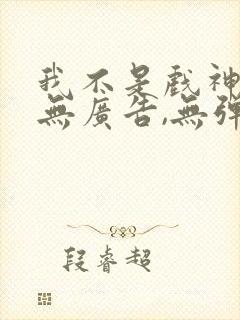 我不是戲神
無廣告,無彈
段睿超